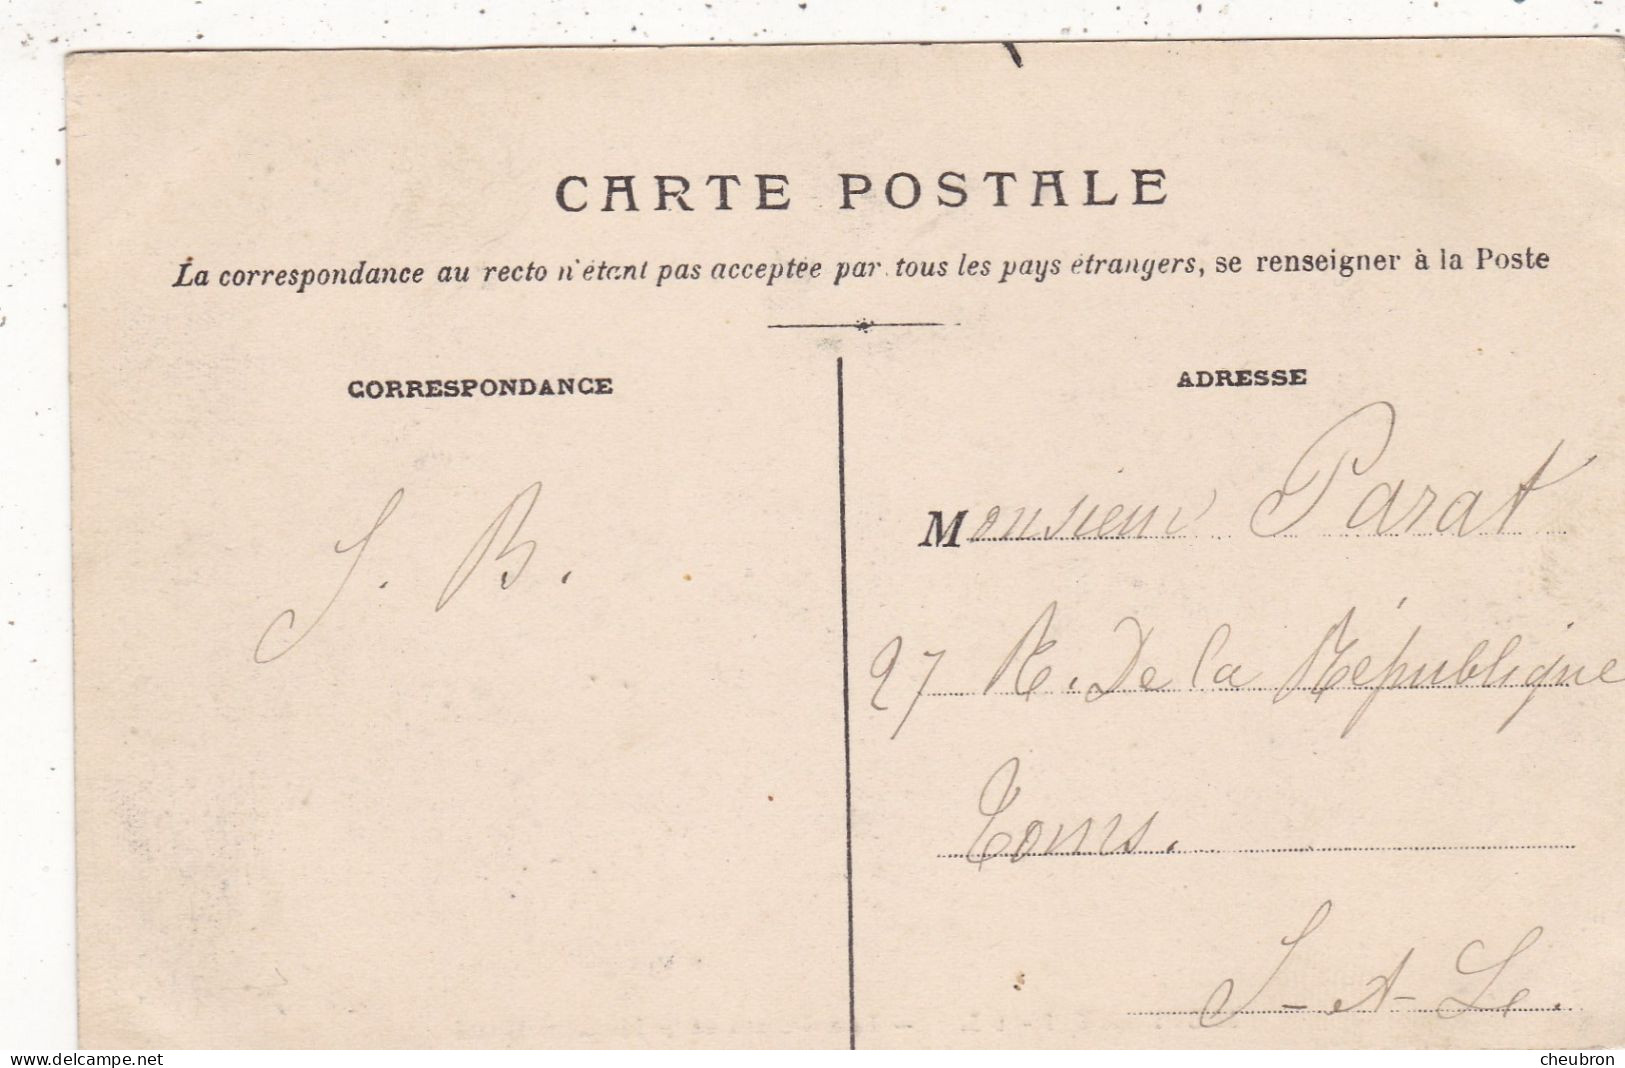 CARTE POSTALE
La correspondance au recto n'étant pas acceptée par tous les pays étrangers, se renseigner à la Poste
CORRESPONDANCE
ADRESSE
S. B.
Monsieur Parat
27 R. De la République
Tours.
I-et-L.
www.delcampe.net
cheubron